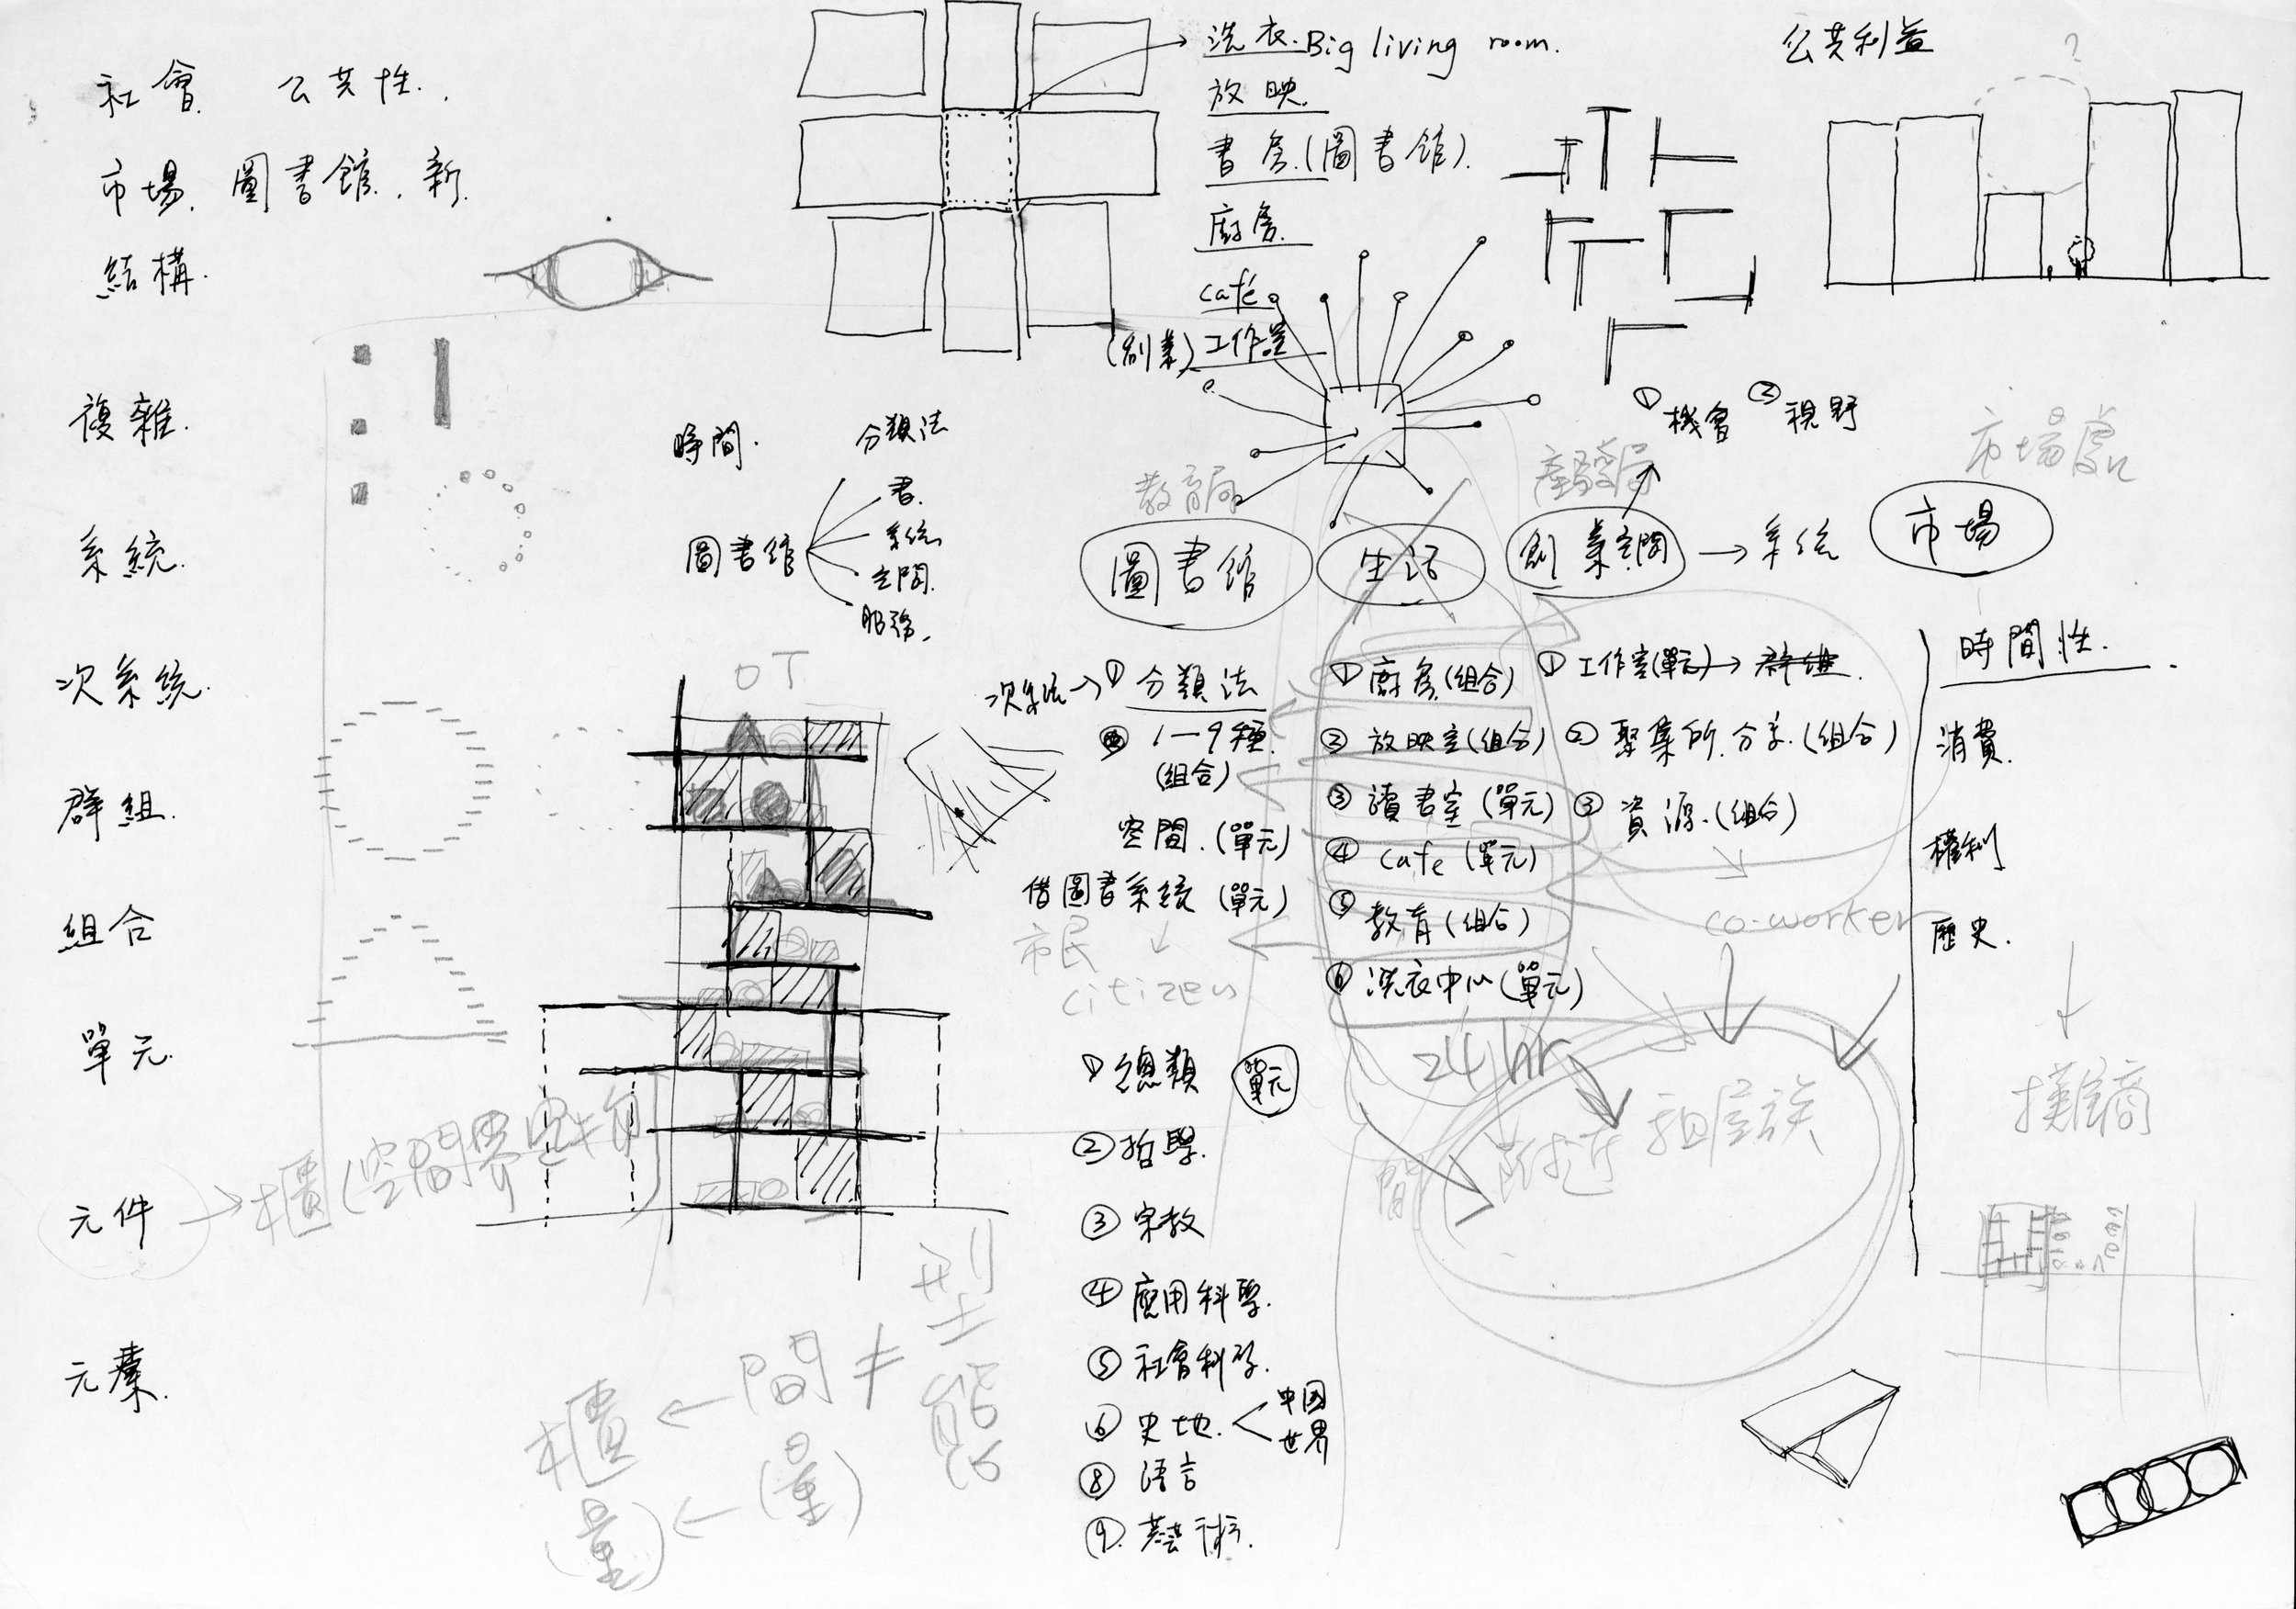 社會. 公共性.
市場. 圖書館. 新.
結構.
複雜.
系統.
次系統.
群組.
組合
單元.
元件
元素.
櫃(空間界
洗衣. Big living room.
放映.
書房.(圖書館).
廚房.
café
(創業) 工作室
公共利益
?
①機會 ②視野
時間.
分類法
圖書館
書.
系統
空間.
服務.
教育局
產發局
市場處
圖書館
生活
創業空間 → 系統
市場
次系統→① 分類法
② 1—9種.
(組合)
空間.(單元)
借圖書系統 (單元)
市民
citizen
① 廚房(組合)
② 放映室(組合)
③ 讀書室 (單元)
④ cafe (單元)
⑤ 教育 (組合)
⑥ 洗衣中心(單元)
24 hr
① 工作室(單元)→ 群組.
② 聚集所.分享.(組合)
③ 資源.(組合)
co-worker
時間性.
消費.
權利
歷史.
攤商
附近 租屋族
① 總類 單元
② 哲學.
③ 宗教
④ 應用科學.
⑤ 社會科學.
⑥ 史地. 中國
世界
⑧ 語言
⑨. 藝術.
櫃 ← 間 ≠ 型態
(量) ← (量)